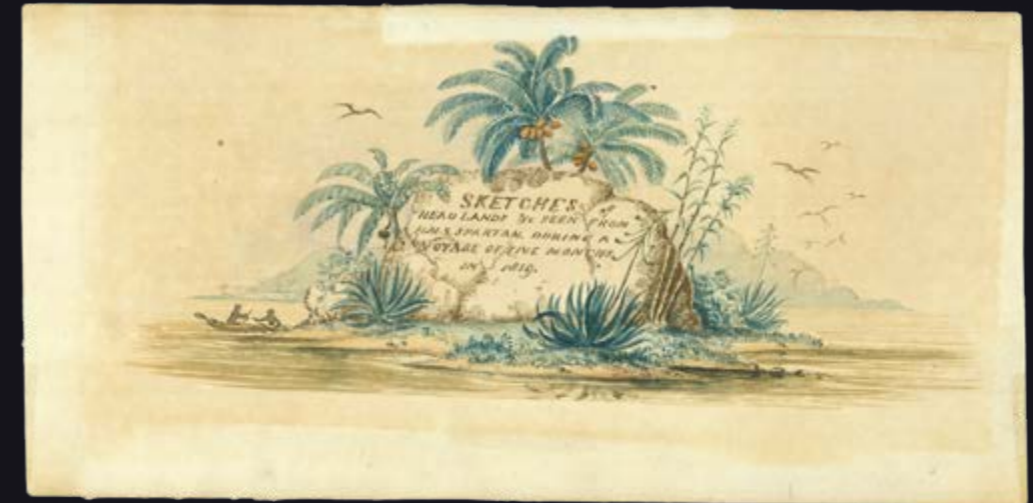 SKETCHES
HEAD LANDS &c SEEN FROM
H.M.S SPARTAN DURING A
VOYAGE OF FIVE MONTHS
IN 1819.